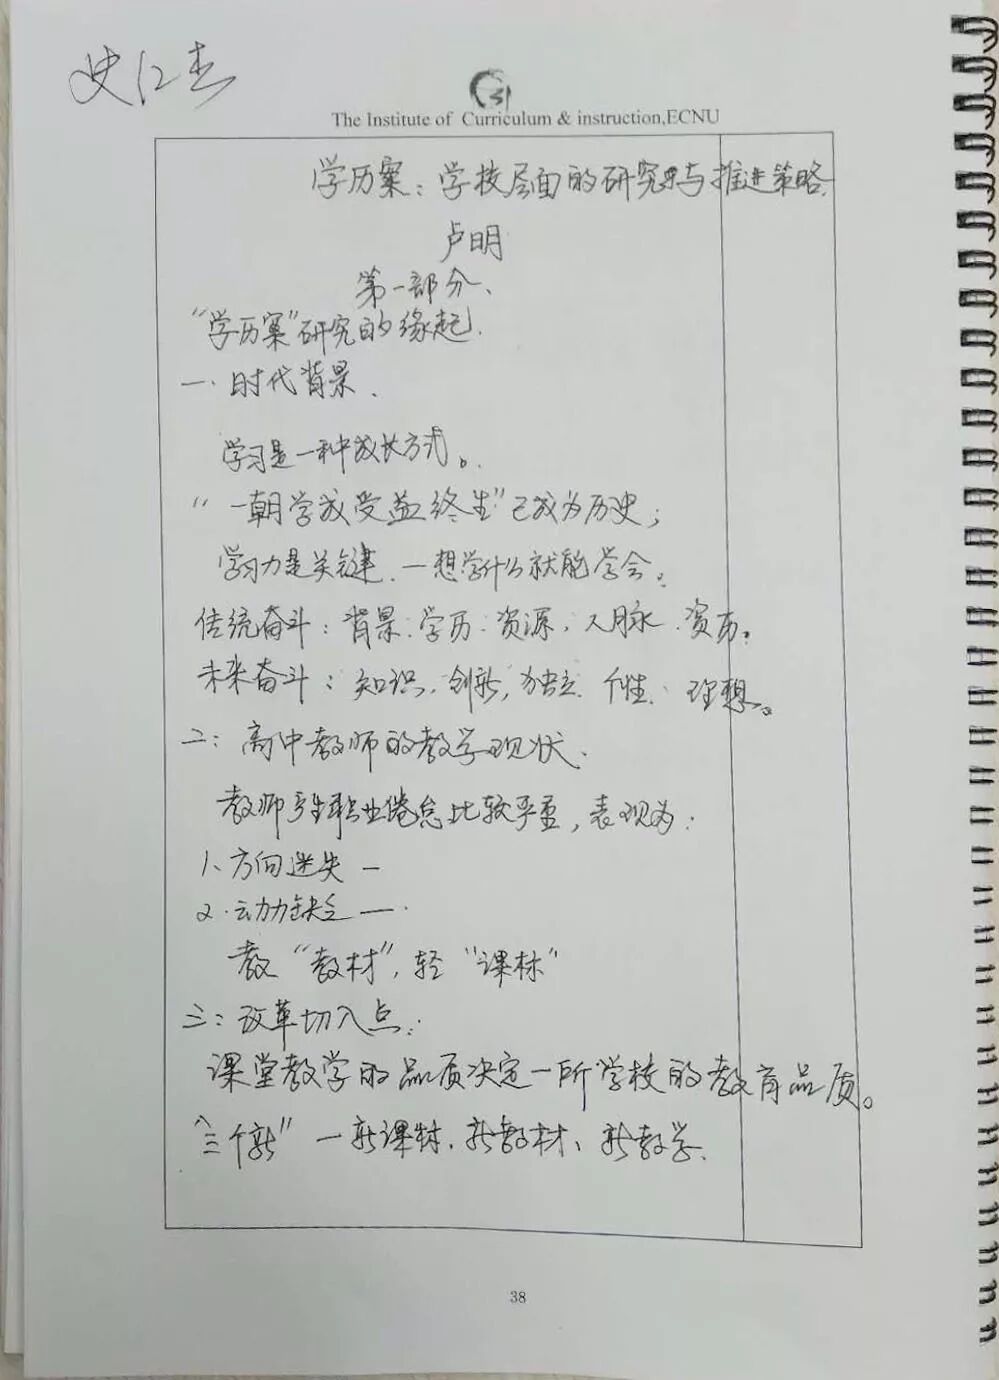 史江杰
The Institute of Curriculum & instruction,ECNU
学历案：学校层面的研究与推进策略.
卢明
第一部分、
“学历案”研究的缘起.
一. 时代背景.
学习是一种成长方式。
“一朝学成受益终生”已成为历史；
学习力是关键. 一想学什么就能学会。
传统奋斗：背景. 学历. 资源. 人脉. 资历。
未来奋斗：知识. 创新, 独立. 个性. 理想。
二：高中教师的教学现状.
教师产生职业倦怠比较严重，表现为：
1、方向迷失 —
2.动力缺乏 —.
教“教材”, 轻“课标”
三：改革切入点：
课堂教学的品质决定一所学校的教育品质。
“三个新”一新课标、新教材、新教学.
38